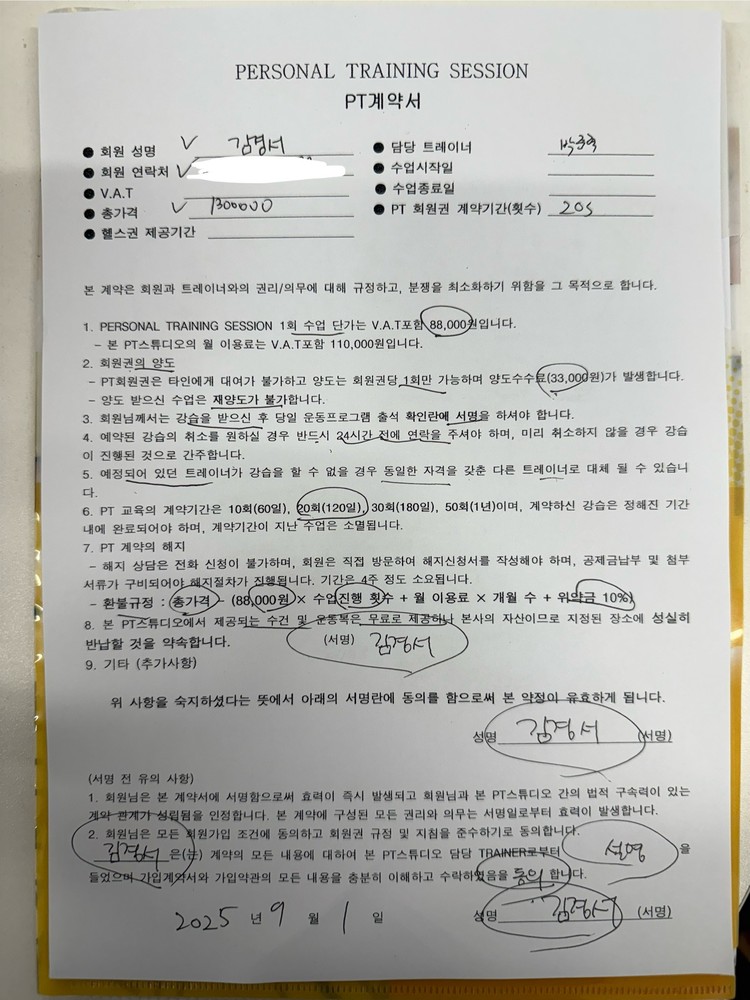 PERSONAL TRAINING SESSION
PT계약서
● 회원 성명 ✓ 김경서
● 담당 트레이너
● 회원 연락처 ✓
● 수업시작일
● V.A.T
● 수업종료일
● 총가격 ✓ 1300000
● PT 회원권 계약기간(횟수) 20s
● 헬스권 제공기간
본 계약은 회원과 트레이너와의 권리/의무에 대해 규정하고, 분쟁을 최소화하기 위함을 그 목적으로 합니다.
1. PERSONAL TRAINING SESSION 1회 수업 단가는 V.A.T포함 88,000원입니다.
- 본 PT스튜디오의 월 이용료는 V.A.T포함 110,000원입니다.
2. 회원권의 양도
- PT회원권은 타인에게 대여가 불가하고 양도는 회원권당 1회만 가능하며 양도수수료(33,000원)가 발생합니다.
- 양도 받으신 수업은 재양도가 불가합니다.
3. 회원님께서는 강습을 받으신 후 당일 운동프로그램 출석 확인란에 서명을 하셔야 합니다.
4. 예약된 강습의 취소를 원하실 경우 반드시 24시간 전에 연락을 주셔야 하며, 미리 취소하지 않을 경우 강습
이 진행된 것으로 간주합니다.
5. 예정되어 있던 트레이너가 강습을 할 수 없을 경우 동일한 자격을 갖춘 다른 트레이너로 대체 될 수 있습니
다.
6. PT 교육의 계약기간은 10회(60일), 20회(120일), 30회(180일), 50회(1년)이며, 계약하신 강습은 정해진 기간
내에 완료되어야 하며, 계약기간이 지난 수업은 소멸됩니다.
7. PT 계약의 해지
- 해지 상담은 전화 신청이 불가하며, 회원은 직접 방문하여 해지신청서를 작성해야 하며, 공제금납부 및 첨부
서류가 구비되어야 해지절차가 진행됩니다. 기간은 4주 정도 소요됩니다.
- 환불규정 : 총가격 - (88,000원 × 수업진행 횟수 + 월 이용료 × 개월 수 + 위약금 10%)
8. 본 PT스튜디오에서 제공되는 수건 및 운동복은 무료로 제공하나 본사의 자산이므로 지정된 장소에 성실히
반납할 것을 약속합니다. (서명) 김경서
9. 기타 (추가사항)
위 사항을 숙지하셨다는 뜻에서 아래의 서명란에 동의를 함으로써 본 약정이 유효하게 됩니다.
성명 김경서 (서명)
(서명 전 유의 사항)
1. 회원님은 본 계약서에 서명함으로써 효력이 즉시 발생되고 회원님과 본 PT스튜디오 간의 법적 구속력이 있는
계약 관계가 성립됨을 인정합니다. 본 계약에 구성된 모든 권리와 의무는 서명일로부터 효력이 발생합니다.
2. 회원님은 모든 회원가입 조건에 동의하고 회원권 규정 및 지침을 준수하기로 동의합니다.
김경서 은(는) 계약의 모든 내용에 대하여 본 PT스튜디오 담당 TRAINER로부터 설명 을
들었으며 가입계약서와 가입약관의 모든 내용을 충분히 이해하고 수락하였음을 동의 합니다.
2025 년 9 월 1 일 성명 김경서 (서명)